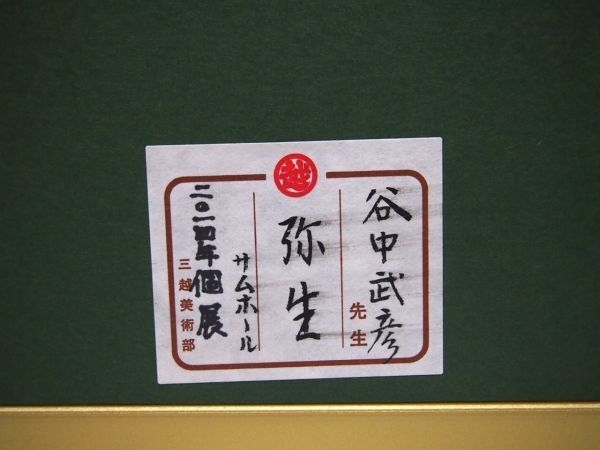 越
谷中武彦
先生
弥生
サムホール
二〇一四年個展
三越美術部